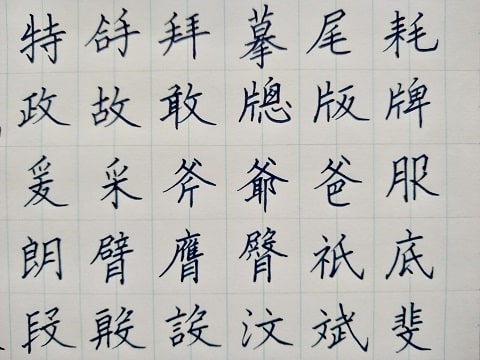 特 拜 摹 尾 耗
政 故 敢 牕 版 牌
爰 采 斧 爺 爸 服
朗 臂 膺 臀 祇 底
段 設 汶 斌 斐